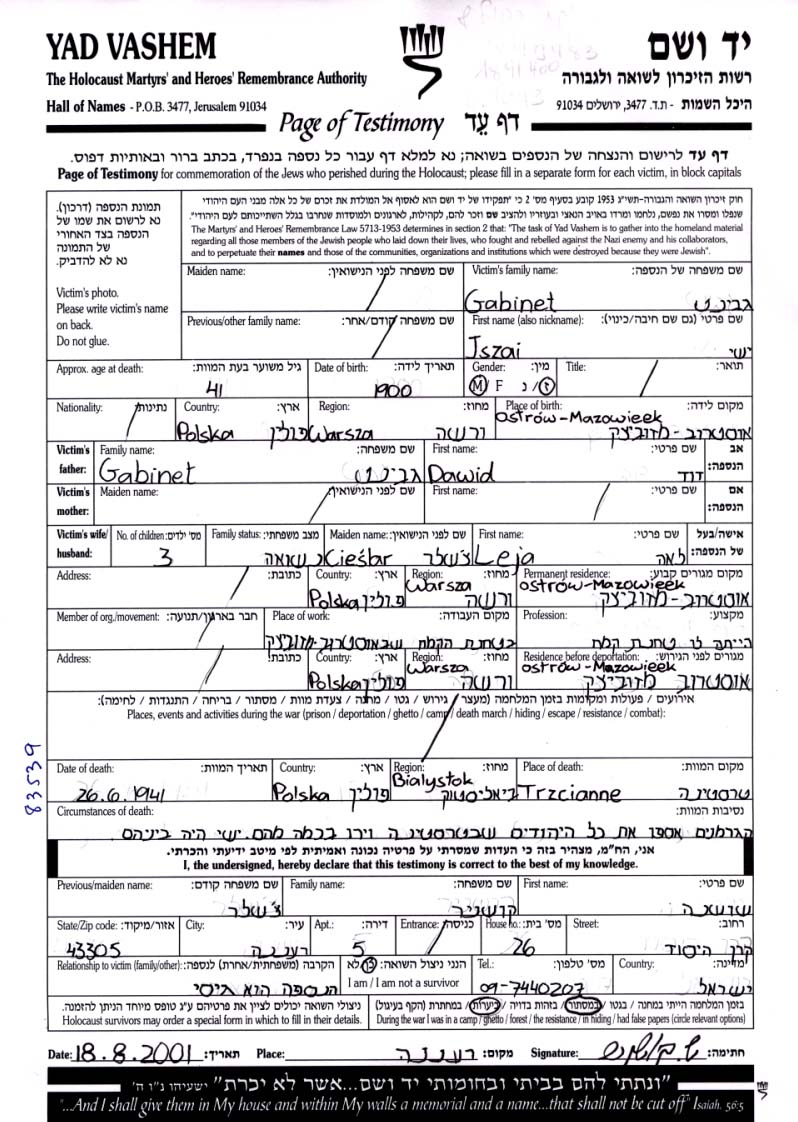 YAD VASHEM
יד ושם
The Holocaust Martyrs' and Heroes' Remembrance Authority
רשות הזיכרון לשואה ולגבורה
Hall of Names - P.O.B. 3477, Jerusalem 91034
היכל השמות - ת.ד. 3477, ירושלים 91034
Page of Testimony דף עֵד
דף עד לרישום והנצחה של הנספים בשואה; נא למלא דף עבור כל נספה בנפרד, בכתב ברור ובאותיות דפוס.
Page of Testimony for commemoration of the Jews who perished during the Holocaust; please fill in a separate form for each victim, in block capitals
תמונת הנספה (דרכון).
נא לרשום את שמו של
הנספה בצד האחורי
של התמונה
נא לא להדביק.
Victim's photo.
Please write victim's name
on back.
Do not glue.
חוק זיכרון השואה והגבורה-תשי"ג 1953 קובע בסעיף מס' 2 כי "תפקידו של יד ושם הוא לאסוף אל המולדת את זכרם של כל אלה מבני העם היהודי
שנפלו ומסרו את נפשם, נלחמו ומרדו באויב הנאצי ובעוזריו ולהציב שם וזכר להם, לקהילות, לארגונים ולמוסדות שנחרבו בגלל השתייכותם לעם היהודי".
The Martyrs' and Heroes' Remembrance Law 5713-1953 determines in section 2 that: "The task of Yad Vashem is to gather into the homeland material
regarding all those members of the Jewish people who laid down their lives, who fought and rebelled against the Nazi enemy and his collaborators,
and to perpetuate their names and those of the communities, organizations and institutions which were destroyed because they were Jewish".
Maiden name: שם משפחה לפני הנישואין:
Victim's family name: שם משפחה של הנספה:
Gabinet גבינט
Previous/other family name: שם משפחה קודם/אחר:
First name (also nickname): שם פרטי (גם שם חיבה/כינוי):
Iszai ישי
Approx. age at death: גיל משוער בעת המוות: Date of birth: תאריך לידה: Gender: מין: Title: תואר:
41 1900 M F נ / ז
Nationality: נתינות: Country: ארץ: Region: מחוז: Place of birth: מקום לידה:
Polska פולין Warsza ורשה Ostrów-Mazowieek אוסטרוב-מזוביצק
Victim's father: Family name: שם משפחה: First name: שם פרטי: אב הנספה:
Gabinet גבינט Dawid דוד
Victim's mother: Maiden name: שם לפני הנישואין: First name: שם פרטי: אם הנספה:
Victim's wife/ husband: No. of children: מס' ילדים: Family status: מצב משפחתי: Maiden name: שם לפני הנישואין: First name: שם פרטי: אישה/בעל של הנספה:
3 Cieślar צ'שלר Leja לאה
Address: כתובת: Country: ארץ: Region: מחוז: Permanent residence: מקום מגורים קבוע:
Polska פולין Warsza ורשה Ostrów-Mazowieek אוסטרוב-מזוביצק
Member of org./movement: חבר בארגון/תנועה: Place of work: מקום העבודה: Profession: מקצוע:
בטחנת הקמח שבאוסטרוב-מזוביצק הייתה לו טחנת קמח
Address: כתובת: Country: ארץ: Region: מחוז: Residence before deportation: מגורים לפני הגירוש:
Polska פולין Warsza ורשה Ostrów-Mazowieek אוסטרוב מזוביצק
אירועים / פעולות ומקומות בזמן המלחמה (מעצר / גירוש / גטו / מחנה / צעדת מוות / מסתור / בריחה / התנגדות / לחימה):
Places, events and activities during the war (prison / deportation / ghetto / camp / death march / hiding / escape / resistance / combat):
83539
Date of death: תאריך המוות: Country: ארץ: Region: מחוז: Place of death: מקום המוות:
26.6.1941 Polska פולין Bialystok ביאליסטוק Trzcianne טרסטינה
Circumstances of death: נסיבות המוות:
הגרמנים אספו את כל היהודים שבטרסטינה וירו בכמה מהם. ישי היה ביניהם
אני, הח"מ, מצהיר בזה כי העדות שמסרתי על פרטיה נכונה ואמיתית לפי מיטב ידיעתי והכרתי.
I, the undersigned, hereby declare that this testimony is correct to the best of my knowledge.
Previous/maiden name: שם משפחה קודם: Family name: שם משפחה: First name: שם פרטי:
צ'שלר
State/Zip code: אזור/מיקוד: City: עיר: Apt.: דירה: Entrance: כניסה: House no.: מס' בית: Street: רחוב:
43305 רעננה 5 26 קרן היסוד
Relationship to victim (family/other): הקרבה (משפחתית/אחרת) לנספה: הנני ניצול השואה: כן לא Tel.: מס' טלפון: Country: מדינה:
הנספה הוא גיסי I am / I am not a survivor 09-7440207 ישראל
ניצולי השואה יכולים לציין את פרטיהם ע"ג טופס מיוחד הניתן להזמנה.
בזמן המלחמה הייתי במחנה / בגטו / במסתור / בזהות בדויה / ביערות / במחתרת (הקף בעיגול)
Holocaust survivors may order a special form in which to fill in their details.
During the war I was in a camp / ghetto / forest / the resistance / in hiding / had false papers (circle relevant options)
Date: 18.8.2001 תאריך: Place: רעננה מקום: Signature: חתימה:
"ונתתי להם בביתי ובחומותי יד ושם...אשר לא יכרת" ישעיהו נ"ו ה'
"...And I shall give them in My house and within My walls a memorial and a name...that shall not be cut off" Isaiah, 56:5